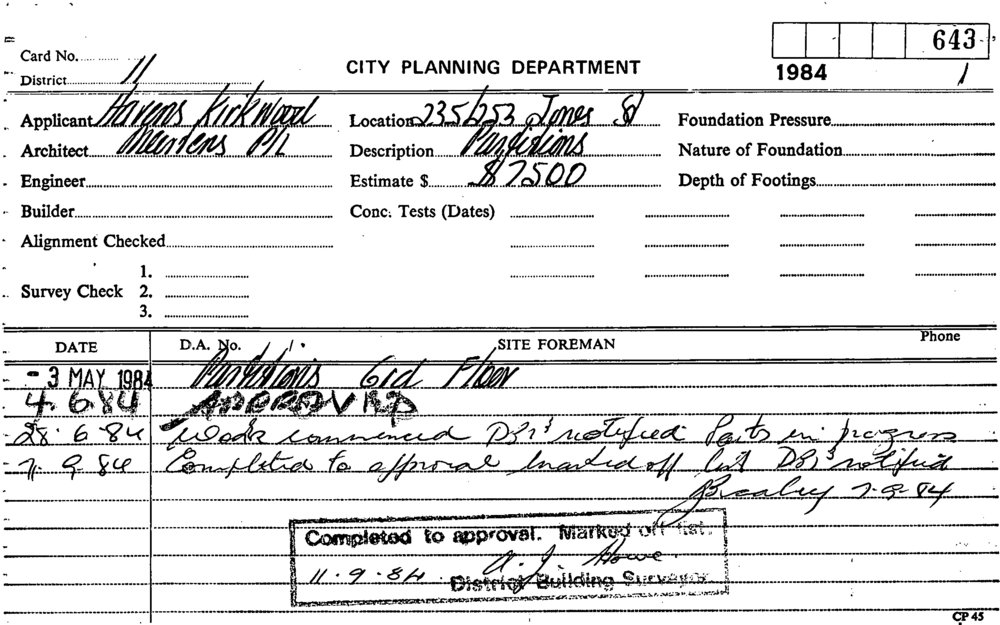 643
Card No.
CITY PLANNING DEPARTMENT 1984 1
District 11
Applicant Havens Kirkwood Location 235/253 Jones St Foundation Pressure
Architect Mertens P/L Description Partitions Nature of Foundation
Engineer Estimate $ $7500 Depth of Footings
Builder Conc. Tests (Dates)
Alignment Checked
1.
Survey Check 2.
3.
DATE D.A. No. SITE FOREMAN Phone
- 3 MAY 1984 Partitions Grd Floor
4.6.84 APPROVED
28.6.84 Work commenced notified Parts in progress
7.9.84 Completed to approval marked off list notified
7-9-84
Completed to approval. Marked off list.
11.9.84 A. J. Howe
District Building Surveyor
CP 45